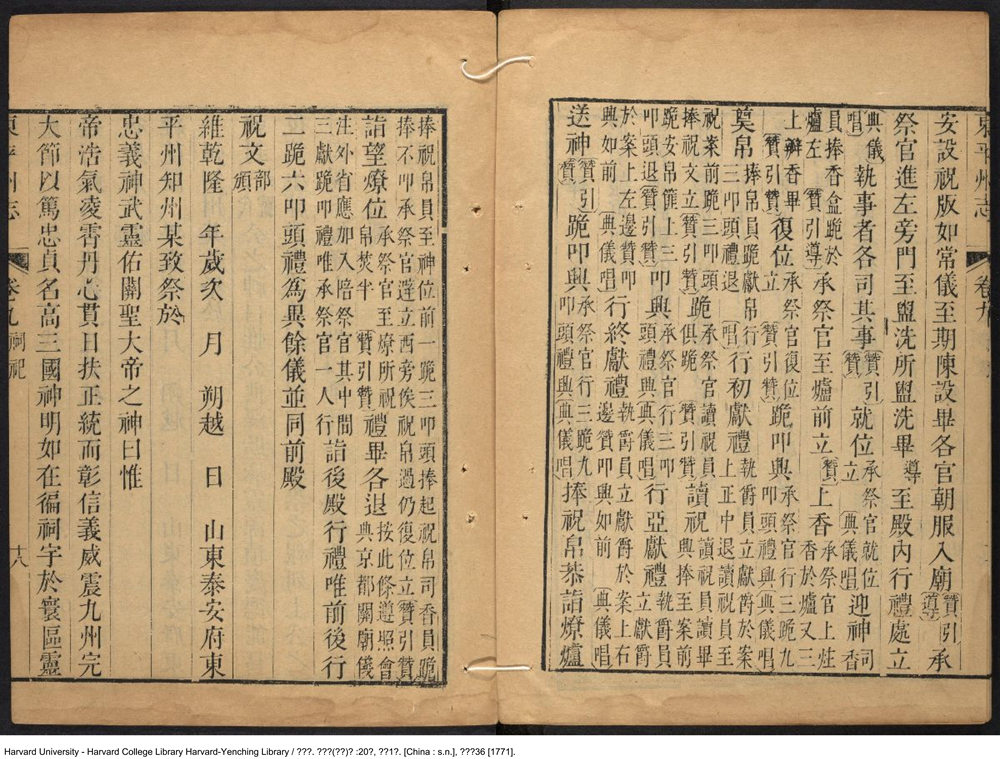 東平州志 卷九
安設祝版如常儀至期陳設畢各官朝服入廟贊引導承
祭官進左旁門至盥洗所盥洗畢導至殿內行禮處立
典儀唱執事者各司其事贊引贊就位承祭官就位立典儀唱迎神司香
員捧香盒跪於爐左贊引導承祭官至爐前立贊上香承祭官上炷香於爐又三
上瓣香畢贊引贊復位承祭官復位贊引贊跪叩興承祭官行三跪九叩頭禮興典儀唱
奠帛捧帛員跪獻帛行三叩頭禮退唱行初獻禮執爵員立獻爵於案上正中退讀祝員至
祝案前跪三叩頭捧祝文立贊引贊跪承祭官讀祝員俱跪贊引贊讀祝讀祝員讀畢興捧至案前
跪安帛匣上三叩頭退贊引贊叩興承祭官行三叩頭禮興典儀唱行亞獻禮執爵員立獻爵
於案上左邊贊叩興如前典儀唱行終獻禮執爵員立獻爵於案上右邊贊叩興如前典儀唱
送神贊引贊跪叩興承祭官行三跪九叩頭禮興典儀唱捧祝帛恭詣燎爐
捧祝帛員至神位前一跪三叩頭捧起祝帛司香員跪捧不叩承祭官避立西旁俟祝帛過仍復位立贊引贊
詣望燎位承祭官至燎所祝帛焚半贊引贊禮畢各退按此條遵照會典京都關廟儀
注外省應加入陪祭官其中間三獻跪叩禮唯承祭官一人行詣後殿行禮唯前後行
二跪六叩頭禮為異餘儀並同前殿
祝文部頒
維乾隆 年歲次 月 朔越 日 山東泰安府東
平州知州某致祭於
忠義神武靈佑關聖大帝之神曰惟
帝浩氣凌霄丹心貫日扶正統而彰信義威震九州完
大節以篤忠貞名高三國神明如在徧祠宇於寰區靈
東平州志 卷九 祠祀 十八
Harvard University - Harvard College Library Harvard-Yenching Library / ???. ???(??)? :20?, ??1?. [China : s.n.], ???36 [1771].